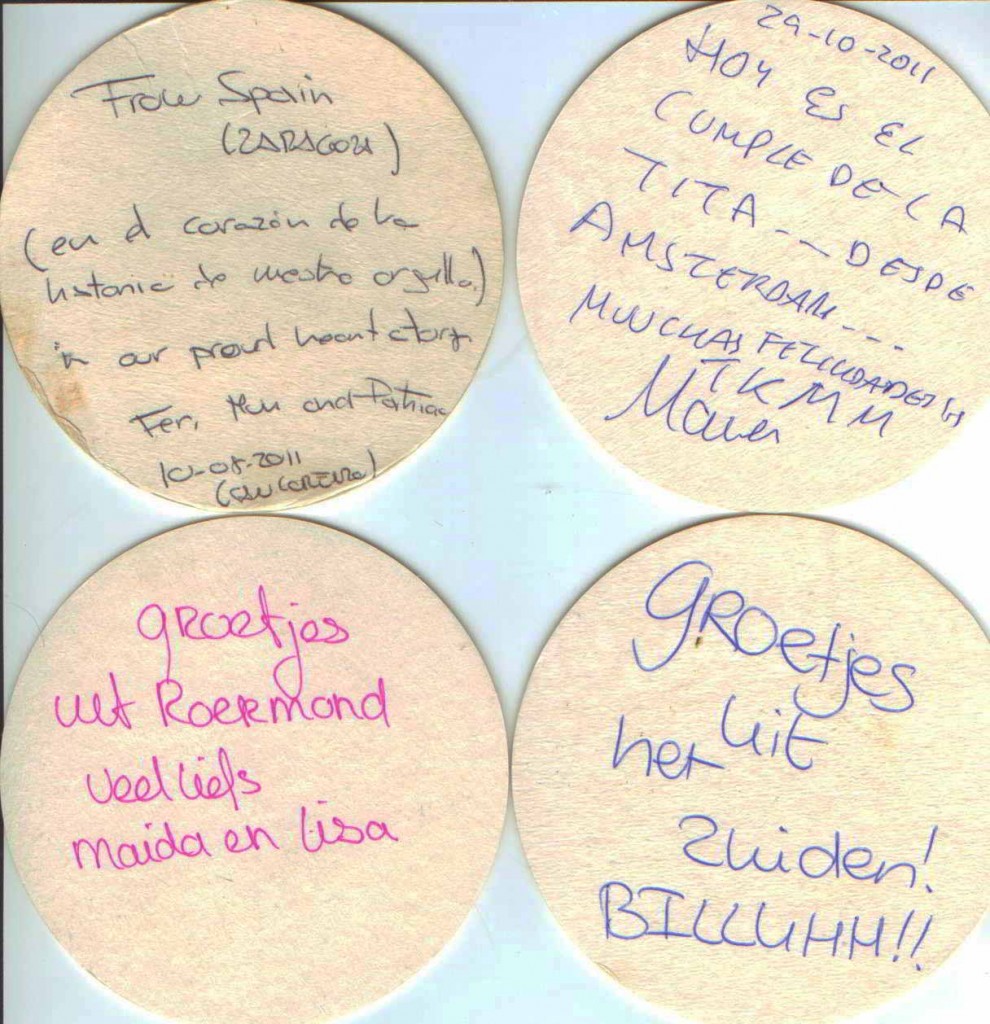 From Spain
(ZARAGOZA)
(en el corazón de la
historia de nuestro orgullo.)
in our proud heart story.
Fer, Mari and Patricia
10-08-2011
29-10-2011
HOY ES EL
CUMPLE DE LA
TITA --- DESDE
AMSTERDAM ---
MUUCHAS FELICIDADES
TKMM
groetjes
uit Roermond
veel liefs
maida en lisa
groetjes
uit
het
Zuiden!
BILLUHH!!